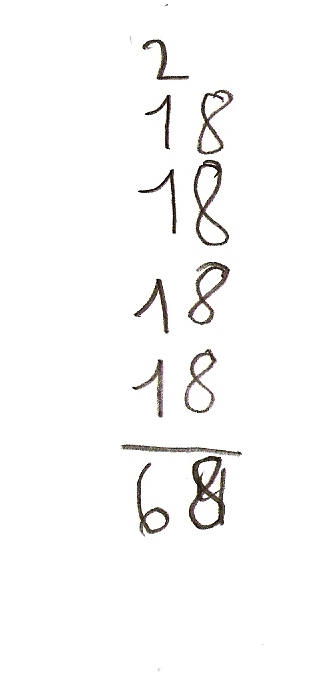 2
18
18
18
18
68